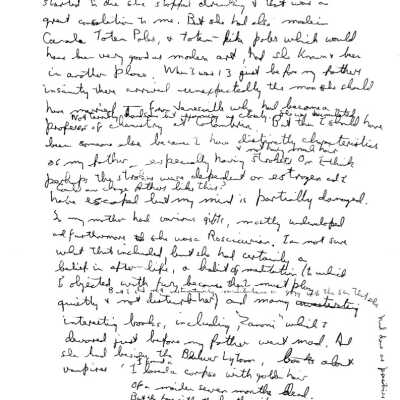 started to die she stopped drinking & that was a
great consolation to me. But she had also made in
Canada Totem Poles, & totem-like poles which would
have been very good as modern art, had she known & been
in another place. When I was 13 just before my father's
insanity there arrived unexpectedly the man she should
have married. From Vancouver who had become a
professor of chemistry at Columbia. But then I should have
been someone else because I have distinctly characteristics
and my small hair
of my father - especially having strokes. Or I think
perhaps the strokes were dependent on estrogen and I
Could one change fathers like this?
have escaped but my mind is partially damaged.
So my mother had various gifts, mostly undeveloped
and furthermore she was a Rosicrucian. I am not sure
what that included but she had certainly a
belief in after life, a habit of meditation (to which
I objected with fury because I must play
quietly & not disturb her) and many
interesting books, including "Zanoni" which I
devoured just before my father went mad. And
she had besides the Bulwer Lytton, books about
vampires I found
I loved a corpse with golden hair
of a maiden seven months dead.